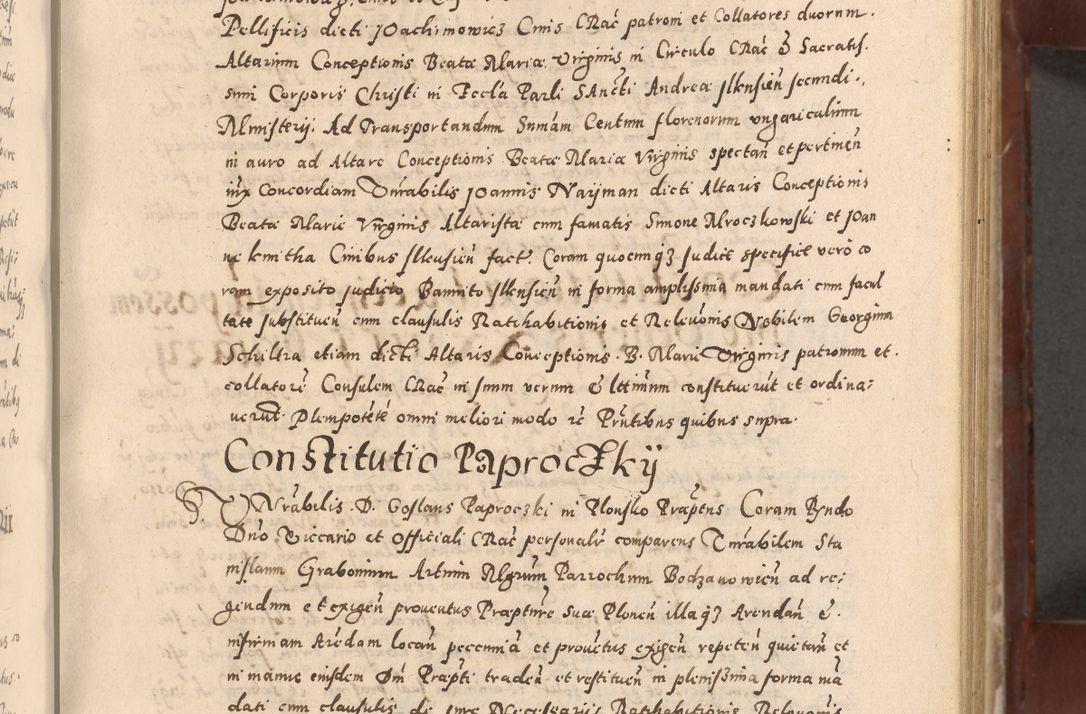 Pellificis dicti Joachimowicz Civis CRac̄ patroni et Collatores duorum.
Altarium Conceptionis Beatæ Mariæ Virginis in Circulo CRac̄ & Sacratis.
simi Corporis Christi in Eccl̄a Parli SAncti Andreæ Ilkusien̄ secundi.
Ministerij. Ad Transportandum Sum̄am Centum florenorum ungaricalium
in auro ad Altare Conceptionis Beatæ Mariæ Virginis spectan̄ et pertinen̄
iux̄ Concordiam Vn̄rabilis Joannis Nayman dicti Altaris Conceptionis
Beatæ Mariæ Virginis Altaristæ cum famatis Simone Mroczkowski et Joan
ne kmitha Civibus Ilkusien̄ fact̄. Coram quocunq̄z Judice specifice vero co
ram exposito Judicio Bannito Ilkusien̄ in forma amplissima mandati cum facul
tate substituen̄ cum clausulis Ratihabitionis et Relevōnis Nobilem Georgium
Schiltra etiam dicti Altaris Conceptionis B. Mariæ Virginis patronum et.
collatorē Consulem CRac̄ in suum verum & lttimum constituerūt et ordina:
verūt. Plenipotētē omni meliori modo r̄c Prn̄tibus quibus supra.
Constitutio PAproczkij
VNrabilis D. Goslaus Paproczki in Plonsko Præptus Coram Rn̄do
Dn̄o Viccario et Officiali CRac̄ personalr̄ comparens Vn̄rabilem Sta
nislaum Grabonium Artium Mgrum Parrochum Bodzanowien̄ ad re:
gendum et exigen̄ proventus Præpturæ Suæ Plonen̄ illaq̄z Arendan̄ &
infirmam Arēdam locan̄ pecuniā et provētus exigen̄ repeten̄ quietan̄ et
in manus eiusdem Dn̄i Præpti traden̄ et restituen̄ in plenissima forma mā
dati cum clausulis de iure Necessariis Ratihabitionis Relevōnis